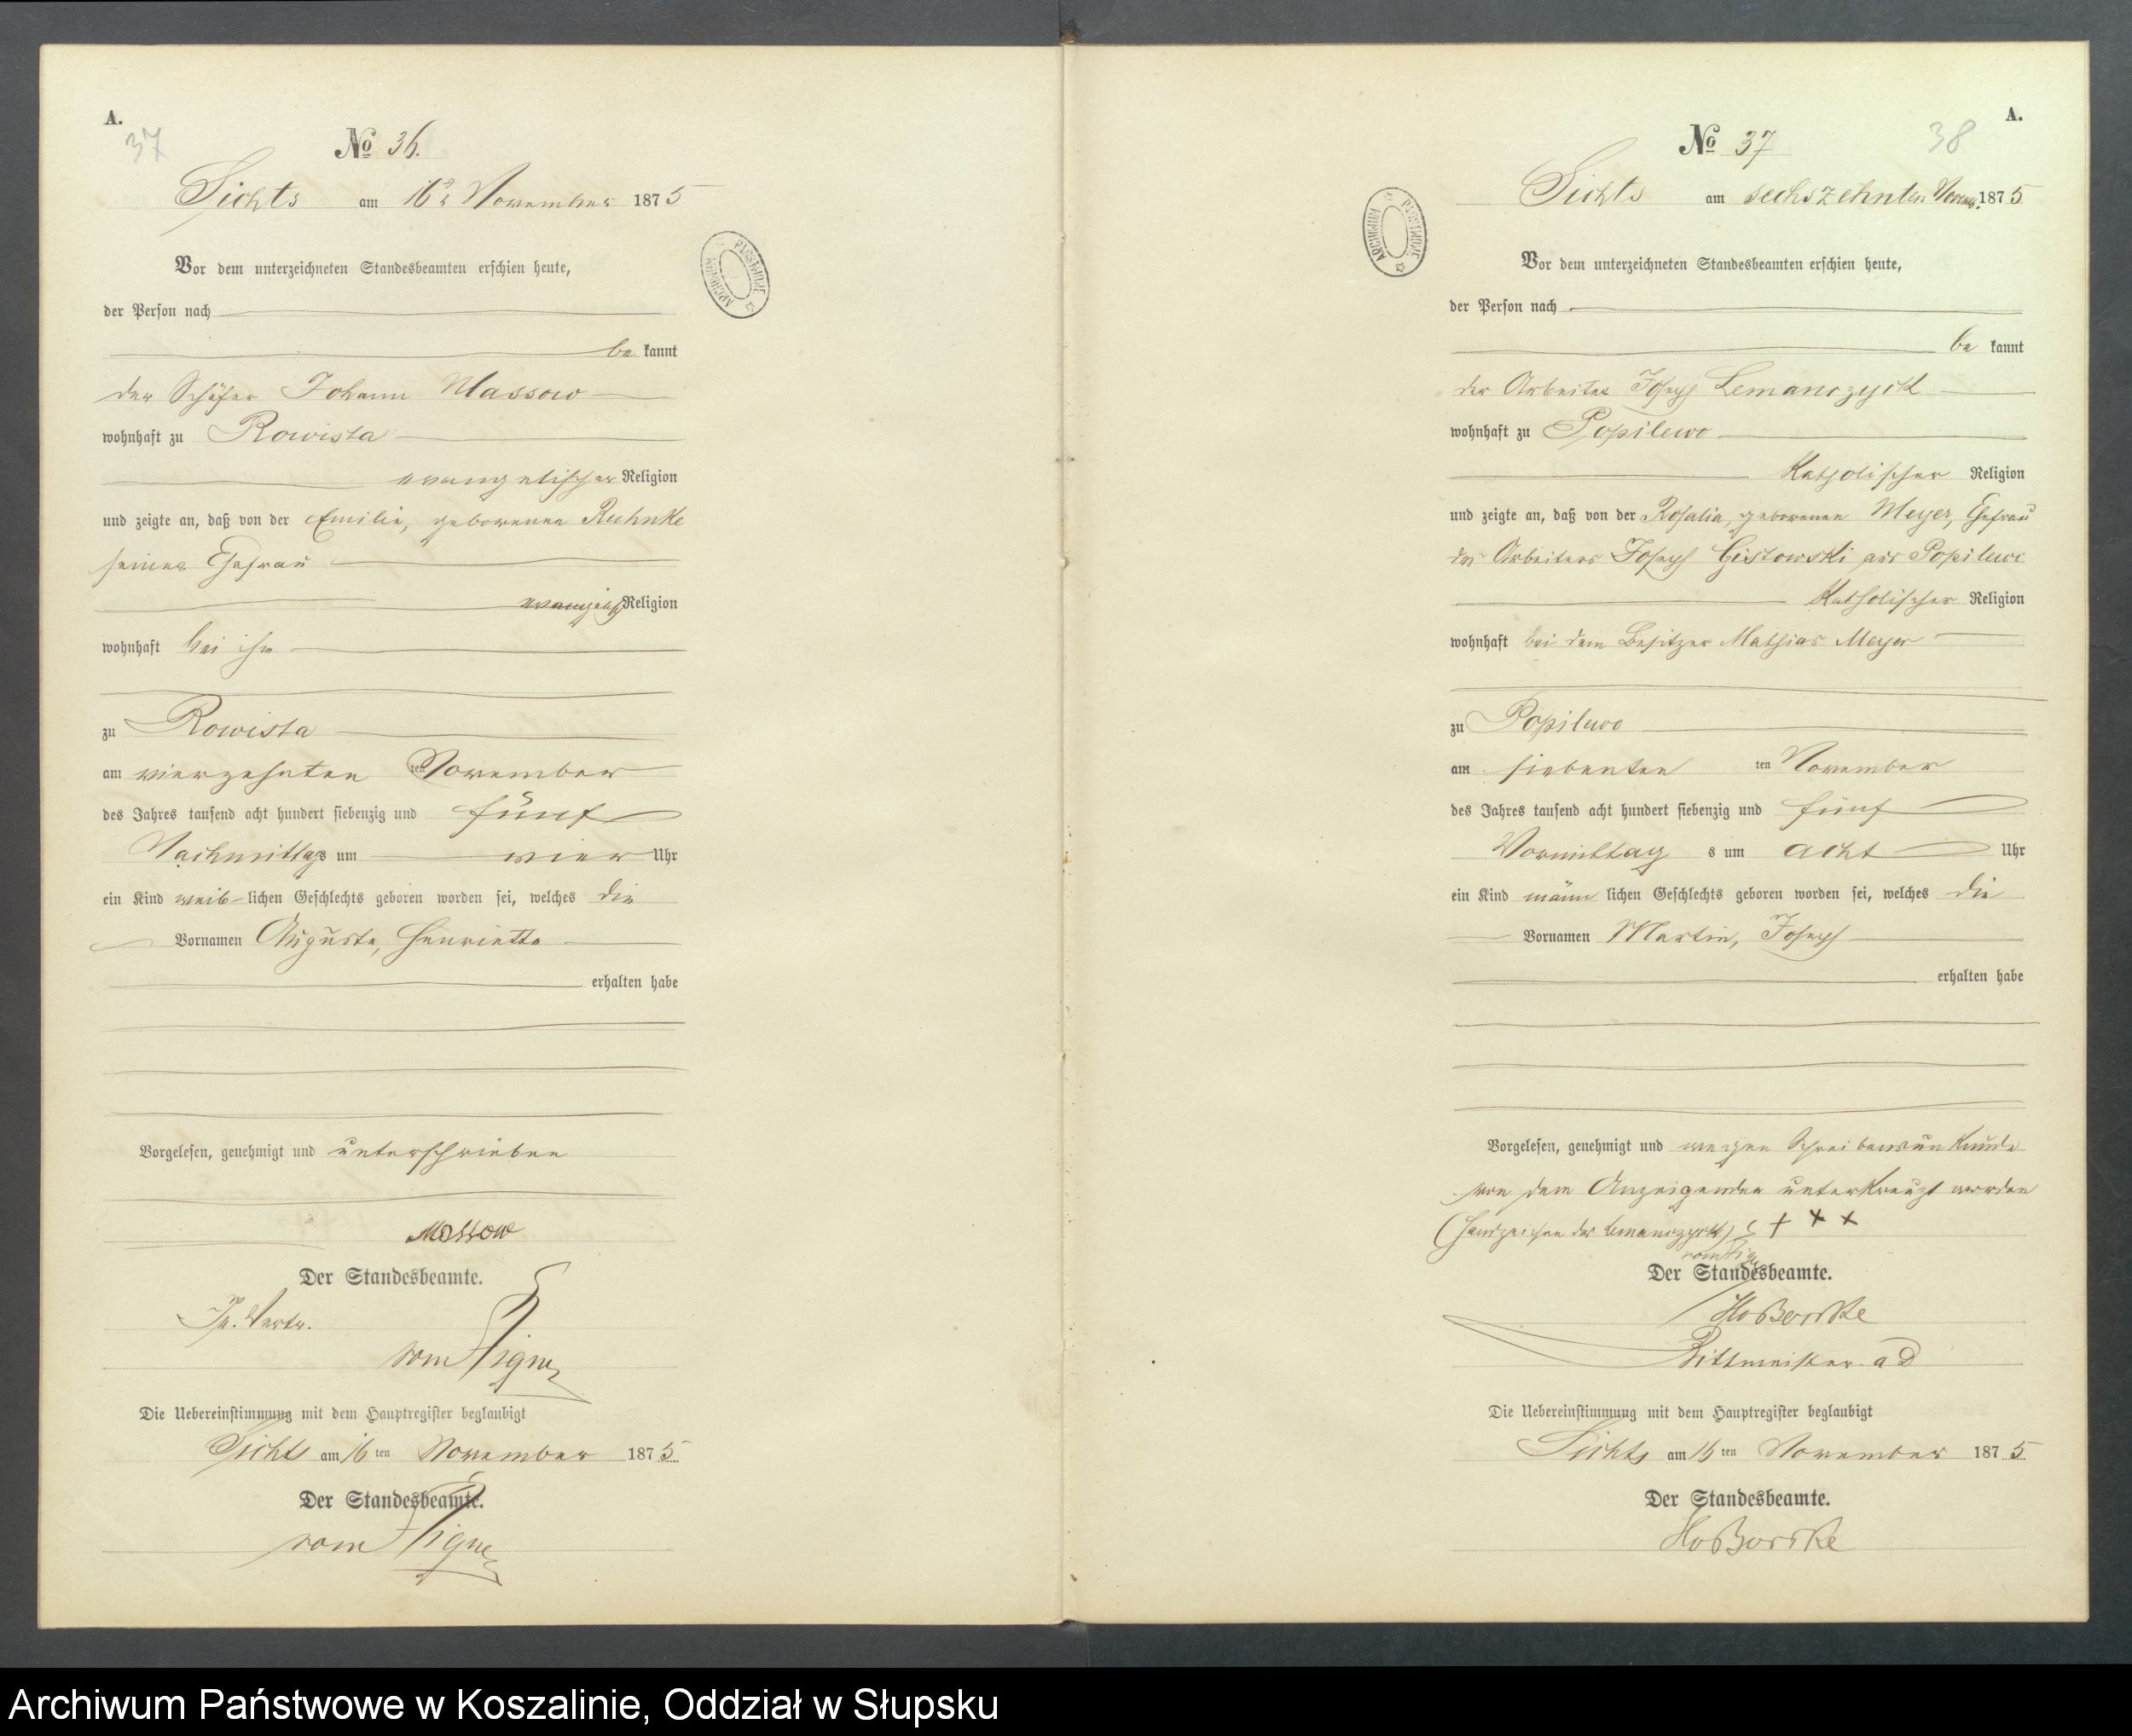 A.
37
No 36.
Sichts am 16ten November 1875
Vor dem unterzeichneten Standesbeamten erschien heute,
der Person nach
be kannt
der Schäfer Johann Massow
wohnhaft zu Rowista
evangelischer Religion
und zeigte an, daß von der Emilie, geborenen Ruhnke
seiner Ehefrau
evangelisch Religion
wohnhaft bei ihm
zu Rowista
am vierzehnten ten November
des Jahres tausend acht hundert siebenzig und fünf
Nachmittags um vier Uhr
ein Kind weib-lichen Geschlechts geboren worden sei, welches die
Vornamen Auguste, Henriette
erhalten habe
Vorgelesen, genehmigt und unterschrieben
Massow
Der Standesbeamte.
In Vertr.
Die Uebereinstimmung mit dem Hauptregister beglaubigt
Sichts am 16 ten November 1875.
Der Standesbeamte.
ARCHIWUM PAŃSTWOWE
A.
38
No 37
Sichts am sechszehnten Novemb. 1875
Vor dem unterzeichneten Standesbeamten erschien heute,
der Person nach
be kannt
der Arbeiter Joseph Lemanczyck
wohnhaft zu Popilewo
Katholischer Religion
und zeigte an, daß von der Rosalia, geborenen Meyer, Ehefrau
des Arbeiters Joseph Gistowski aus Popilewo
Katholischer Religion
wohnhaft bei dem Besitzer Mathias Meyer
zu Popilewo
am siebenten ten November
des Jahres tausend acht hundert siebenzig und fünf
Vormittag s um acht Uhr
ein Kind männ lichen Geschlechts geboren worden sei, welches die
Vornamen Martin, Joseph
erhalten habe
Vorgelesen, genehmigt und wegen Schreibensunkunde
von dem Anzeigenden unterkreuzt worden
(Handzeichen des Lemanczyck) + + +
Der Standesbeamte.
Rittmeister a D
Die Uebereinstimmung mit dem Hauptregister beglaubigt
Sichts am 16 ten November 1875.
Der Standesbeamte.
ARCHIWUM PAŃSTWOWE
Archiwum Państwowe w Koszalinie, Oddział w Słupsku